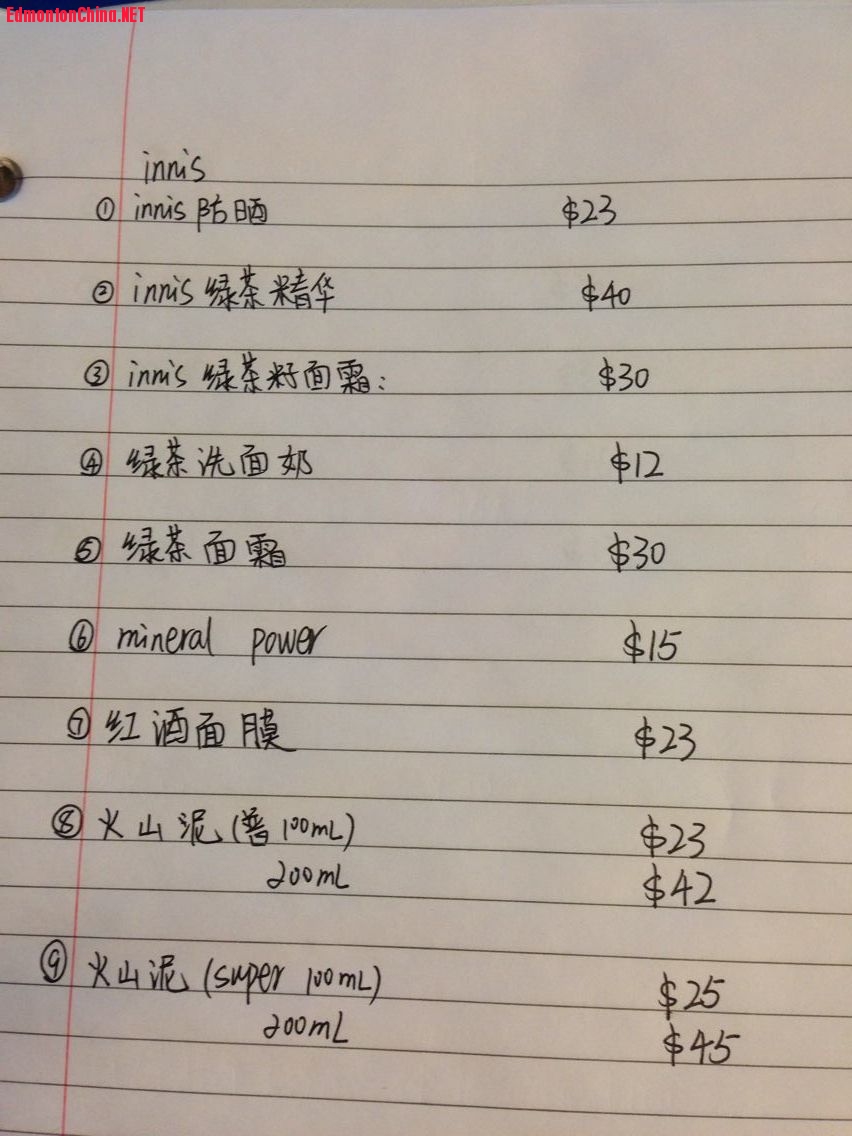 EdmontonChina.NET
innis
① innis 防晒 $23
② innis 绿茶精华 $40
③ innis 绿茶籽面霜: $30
④ 绿茶洗面奶 $12
⑤ 绿茶面霜 $30
⑥ mineral power $15
⑦ 红酒面膜 $23
⑧ 火山泥(普100mL) $23
200mL $42
⑨ 火山泥(super 100mL) $25
200mL $45